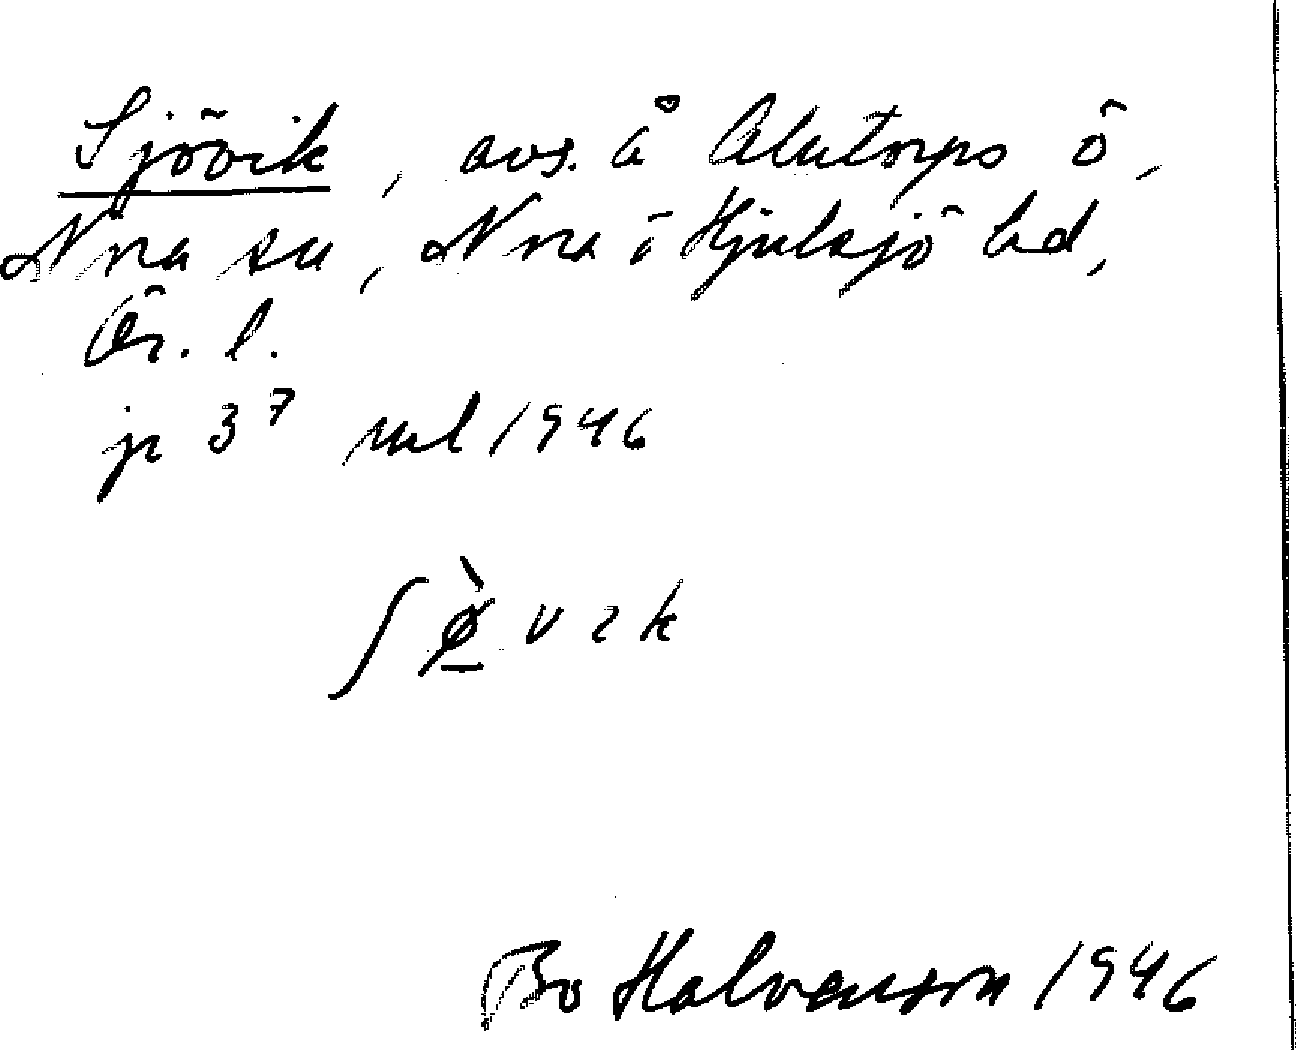 Sjövik, avs. å Alntorps ö,
Nora sn, Nora o Hjulsjö bd,
Ör. l.
jr 3⁷ ml 1946
ʃø̠̀vık
Bo Halvarsson 1946